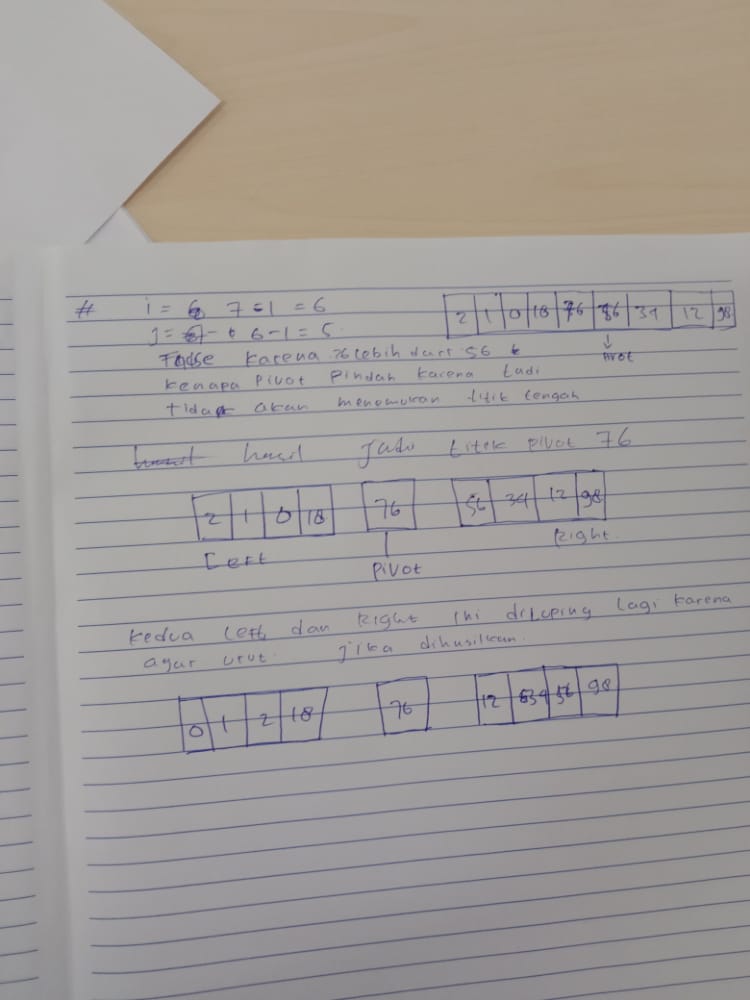 # i = 7 - 1 = 6
2 1 0 18 76 56 34 12 98
j = 6 - 1 = 5
Pivot
False karena 76 lebih dari 56
kenapa pivot pindah karena tadi
tidak akan menemukan titik tengah
hasil jadi titek pivot 76
2 1 0 18 76 56 34 12 98
Left Pivot Right
kedua left dan Right ini diluping lagi karena
agar urut. jika dihasilkan.
0 1 2 18 76 12 34 56 98